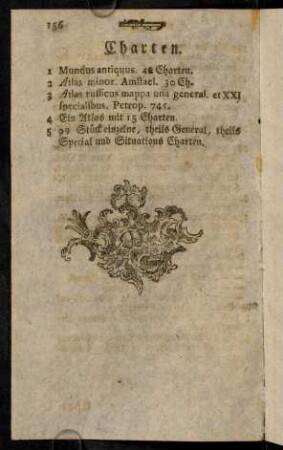 156
Charten.
1 Mundus antiquus. 48 Charten.
2 Atlas minor. Amstael. 30 Ch.
3 Atlas russicus mappa una general. et XXI
specialibus. Petrop. 745.
4 Ein Atlas mit 15 Charten.
5 99 Stück einzelne, theils General, theils
Special und Situations Charten.